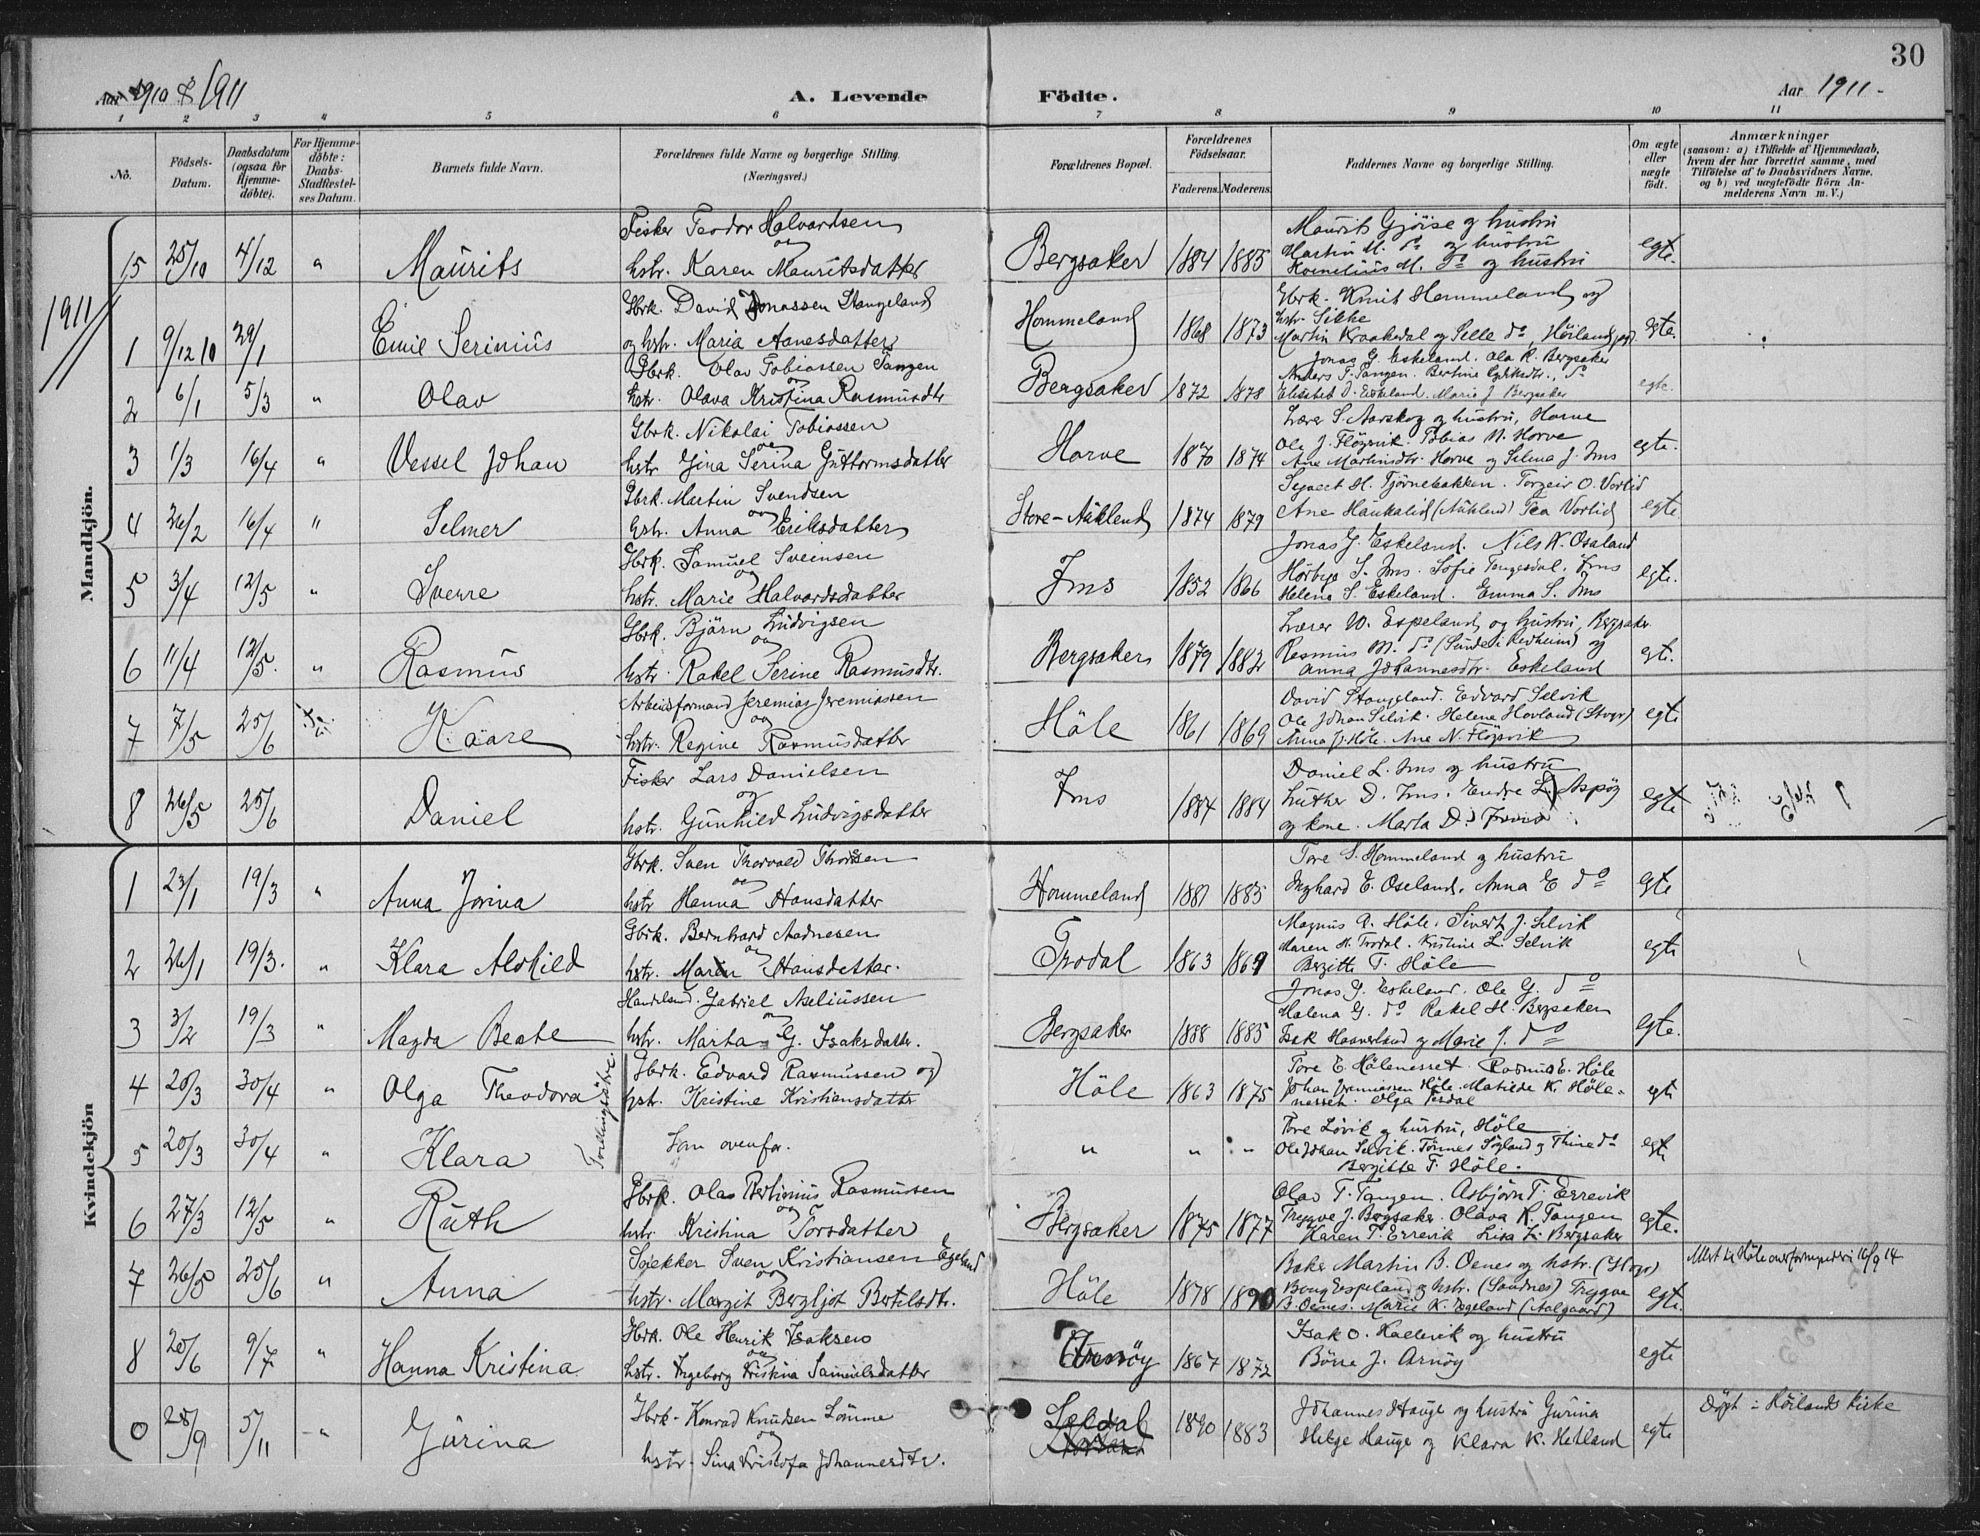 30
1910 & 1911
A. Levende Födte.
Aar 1911 -
1 2 3 4 5 6 7 8 9 10 11
No.
Födsels-Datum.
Daabsdatum (ogsaa for Hjemmedøbte).
For Hjemmedøbte: Daabs-Stadfæstelses Datum.
Barnets fulde Navn.
Forældrenes fulde Navne og borgerlige Stilling (Næringsvei.)
Forældrenes Bopæl.
Forældrenes Födselsaar.
Faderens. Moderens.
Faddernes Navne og borgerlige Stilling.
Om ægte eller uægte födt.
Anmærkninger
(saasom: a) i Tilfælde af Hjemmedaab, hvem der har forrettet samme, med Tilföielse af to Daabsvidners Navne, og b) ved uægtefödte Börn Anmelderens Navn m. V.)
Mandkjön.
15 25/10 4/12 " Maurits
Fisker Teodor Halvardsen og
hstr. Karen Mauritsdatter
Bergsaker 1884 1885
Maurits Gjöise og hustru
Martin M. do og hustru
Kornelius M. do og hustru
egte.
1911
1 9/12 10 29/1 Emil Serinius
Gbrk. David Jonassen Stangeland
og hstr. Maria Aanesdatter
Hommeland 1868 1873
Gbrk. Knut Hommeland og
hstr. Silke
Martin Kraakedal og Sille do, Höiland pgd.
egte.
2 6/1 5/3 " Olav
Gbrk. Olav Tobiassen Tangen og
hstr. Olava Kristina Rasmusdtr
Bergsaker 1872 1878
Jonas G. Eskeland. Ola R. Bergsaker
Anders T. Tangen. Bertine, do
Elisabed D. Eskeland. Marie J Bergsaker
egte.
3 1/3 16/4 " Vessel Johan
Gbrk. Nikolai Tobiassen og
hstr Gina Serina Guttormsdatter
Horve 1870 1874
Lærer S. Aarskog og hustru, Horve
Ole J. Flöysvik. Tobias N. Horve
Ane Martinsdtr. Horve og Selma J. Ims
egte.
4 26/2 16/4 " Selmer
Gbrk. Martin Svendsen og
hstr. Anna Eriksdatter
Store-Aukland 1874 1879
Syvert H. Tjörnebakken. Torgeir O. Vorlid
Ane Haukalid (Aukland) Tea Vorlid
egte
5 3/4 12/5 " Sverre
Gbrk. Samuel Sveinsen og
hstr. Marie Halvardsdatter
Ims 1852 1866
Jonas G. Eskeland. Nils K. Osaland
Hörbye S. Ims. Sofie Tangesdal, Ims
Helena S. Eskeland. Emma S. Ims
egte.
6 11/4 12/5. " Rasmus
Gbrk. Björn Ludvigsen og
hstr. Rakel Serine Rasmusdtr.
Bergsaker 1879 1882
Lærer W. Espeland og hustru, Bergsaker
Rasmus M. do (Sunde i Redheim) og
Anna Johannesdtr. Eskeland
egte.
7 7/5 25/6 Kaare
Arbeidsformand Jeremias Jeremiassen og
hstr. Regine Rasmusdatter
Höle 1861 1869
David Stangeland. Edvard Selvik
Ole Johan Selvik. Helene Hovland (Stvgr)
Anna J. Höle. Ane N. Flöysvik
egte
8 26/5 25/6 Daniel
Fisker Lars Danielsen og
hstr. Gunhild Ludvigsdatter
Ims 1884 1884
Daniel L. Ims og hustru
Luther D. Ims. Endre L. Aspöy
og kone. Marta D.
egte
Kvindekjön
1 23/1 19/3 " Anna Jorina
Gbrk. Sven Thorvald Thorsen og
hstr Hanna Hansdatter
Hommeland 1881 1885
Tore S. Hommeland og hustru
Inghard E. Oseland. Anna E do
egte
2 26/1 19/3. " Klara Alvhild
Gbrk. Bernhard Aadnesen og
hstr. Maren Hansdatter.
Trodal 1863 1869
Magnus A. Höle. Sivert J. Selvik
Maren H. Trodal. Kristine L. Selvik
Bergitte T. Höle
egte
3 3/2 19/3 " Magda Beate
Handelsmd. Gabriel Aseliussen og
hstr. Marta G. Isaksdatter.
Bergsaker 1888 1885
Jonas G. Eskeland. Ole G. do
Malena G. do Rakel H. Bergsaker
Isak Haaverland og Marie J. do
egte.
4 20/3 30/4 " Olga Theodora
Tvillingsöstre.
Gbrk. Edvard Rasmussen og
hstr. Kristine Kristiansdatter
Höle 1863 1875
Tore E. Hölenesset Rasmus E. Höle
Johan Jeremiassen Höle. Matilde K. Hölenesset. Olga Tesdal
egte
5 20/3 30/4 " Klara
Som ovenfor.
" " "
Tore Lövik og hustru, Höle
Ole Johan Selvik. Tönnes Sögland og Thine do
Bergitte T. Höle.
egte
6 27/3 12/5 " Ruth
Gbrk. Olav Bertinius Rasmussen og
hstr. Kristina Torsdatter
Bergsaker 1875 1877
Olav T. Tangen. Asbjörn T. Errevik
Trygve J. Bergsaker. Olava K. Tangen
Karen T. Errevik Lisa L. Bergsaker
egte.
7 26/5 25/6 " Anna
Snekker Sven Kristiansen Egeland og
hstr. Margit Bergljot Bertelsdtr.
Höle 1878 1890
Baker Martin B. Oenes og hstr. (Stvgr)
Espeland og hstr. (Sandnes) Trygve
B. Oenes. Marie K. Egeland (Aalgaard)
egte.
Meldt til Höle overformynderi 16/9 14
8 20/6 9/7 " Hanna Kristina
Gbrk. Ole Henrik Isaksen og
hstr. Ingeborg Kristina Samuelsdatter
Arnöy 1867 1872
Isak O. Kallevik og hustru
Börre J. Arnöy
egte
28/9 5/11 " Gurina
Gbrk. Konrad Knudsen Lomme og
hstr. Sina Kristofa Johannesdtr.
Seldal 1890 1883
Johannes Hauge og hustru Gurina
Helge Hauge og Klara K. Hetland
egte
Döpt i Höilands kirke